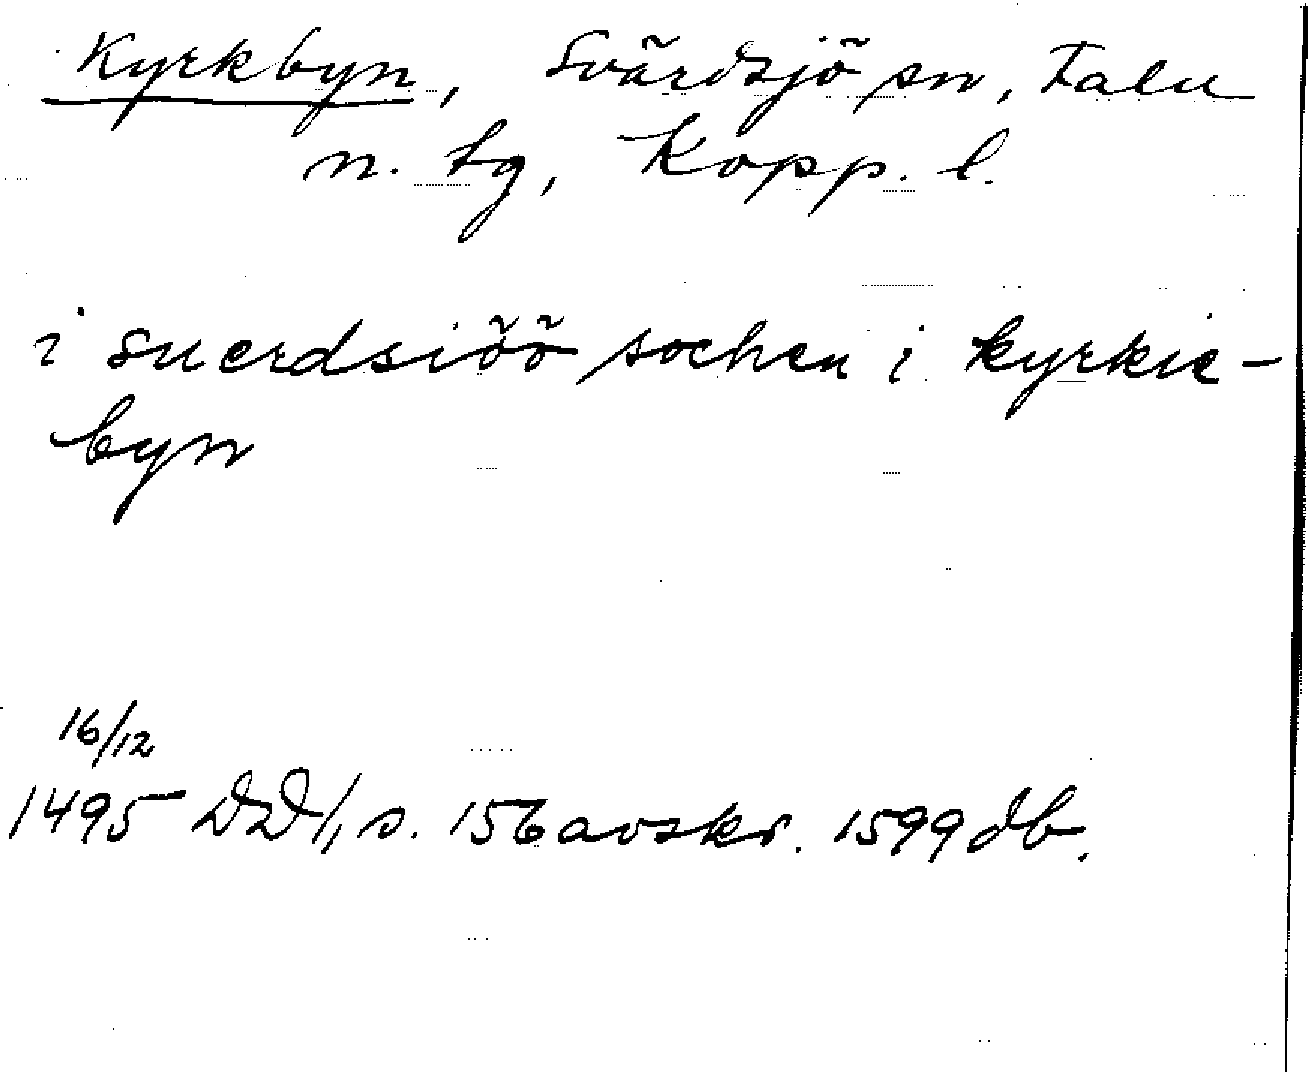 Kyrkbyn, Svärdsjö sn, Falu
n. tg, Kopp. l.
i suerdsiöö sochen i kyrkie-
byn
16/12
1495 DD/1, s. 156 avskr. 1599 db.